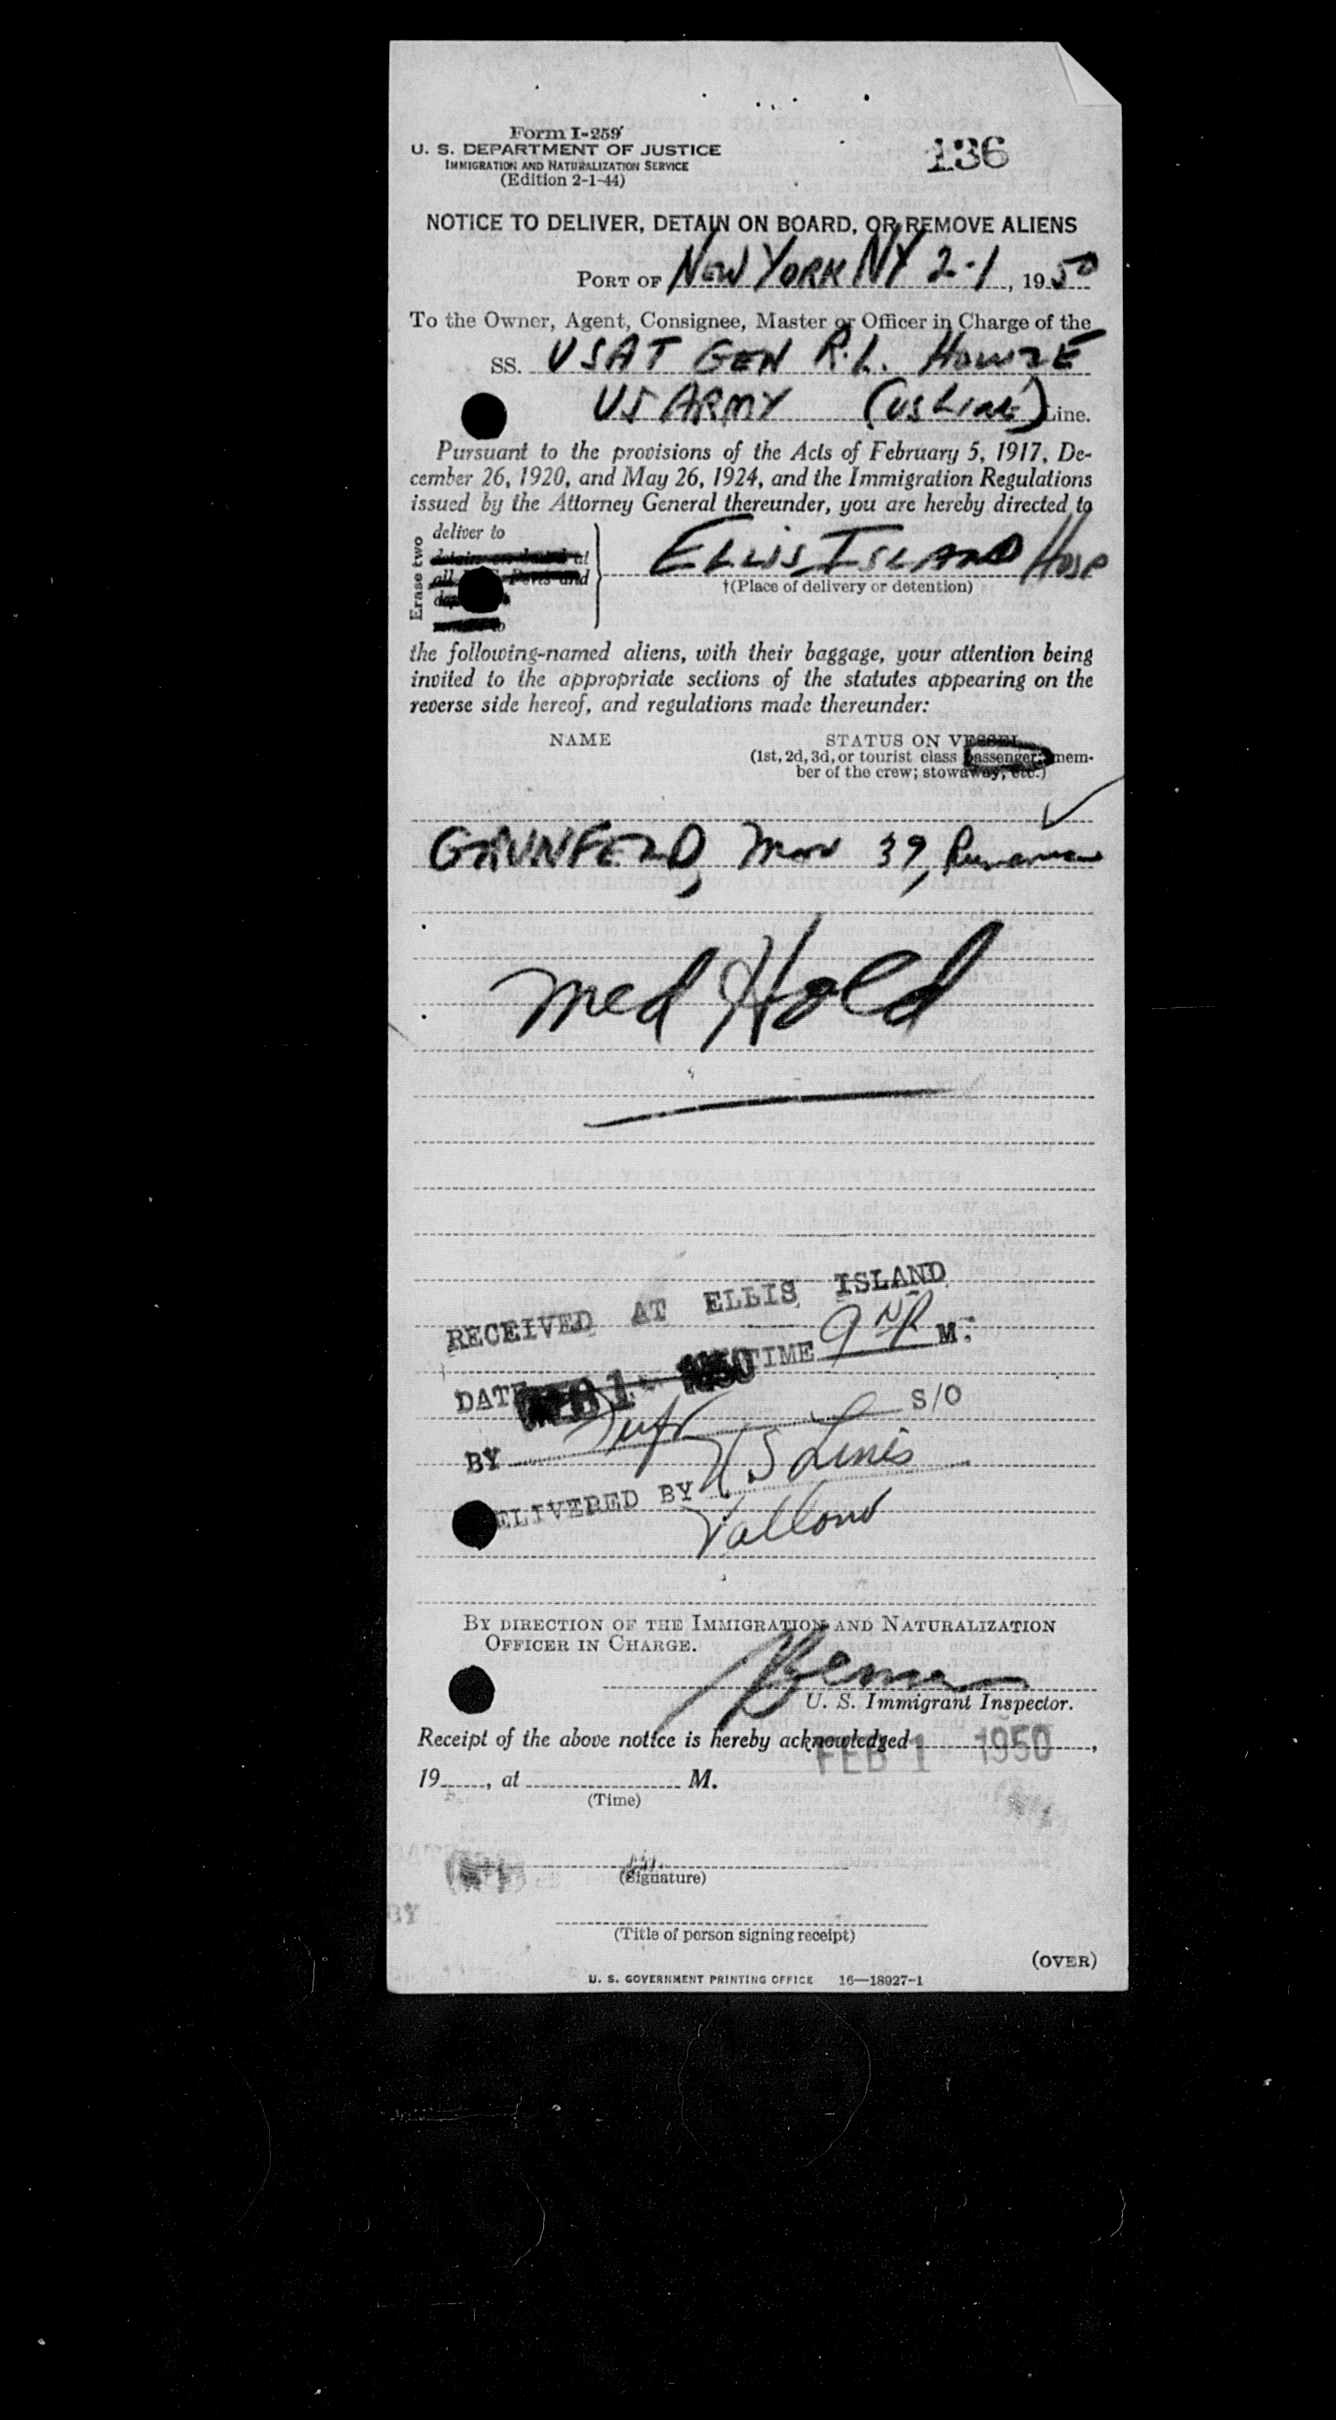 Form I-259
136
U. S. DEPARTMENT OF JUSTICE
IMMIGRATION AND NATURALIZATION SERVICE
(Edition 2-1-44)
NOTICE TO DELIVER, DETAIN ON BOARD, OR REMOVE ALIENS
PORT OF NEW YORK NY 2-1, 1950
To the Owner, Agent, Consignee, Master or Officer in Charge of the
SS. USAT GEN R.L. HOWZE
US ARMY (US LINE) Line.
Pursuant to the provisions of the Acts of February 5, 1917, De-
cember 26, 1920, and May 26, 1924, and the Immigration Regulations
issued by the Attorney General thereunder, you are hereby directed to
Erase two
deliver to
at
all Ports and
to
ELLIS ISLAND Hosp
†(Place of delivery or detention)
the following-named aliens, with their baggage, your attention being
invited to the appropriate sections of the statutes appearing on the
reverse side hereof, and regulations made thereunder:
NAME STATUS ON VESSEL
(1st, 2d, 3d, or tourist class passenger; mem-
ber of the crew; stowaway; etc.)
39,
Med Hold
RECEIVED AT ELLIS ISLAND
DATE FEB 1 - 1950 TIME M.
BY S/O
DELIVERED BY U S Lines
BY DIRECTION OF THE IMMIGRATION AND NATURALIZATION
OFFICER IN CHARGE.
U. S. Immigrant Inspector.
Receipt of the above notice is hereby acknowledged FEB 1 - 1950,
19, at M.
(Time)
(Signature)
BY
(Title of person signing receipt)
(OVER)
U. S. GOVERNMENT PRINTING OFFICE 16—18927-1